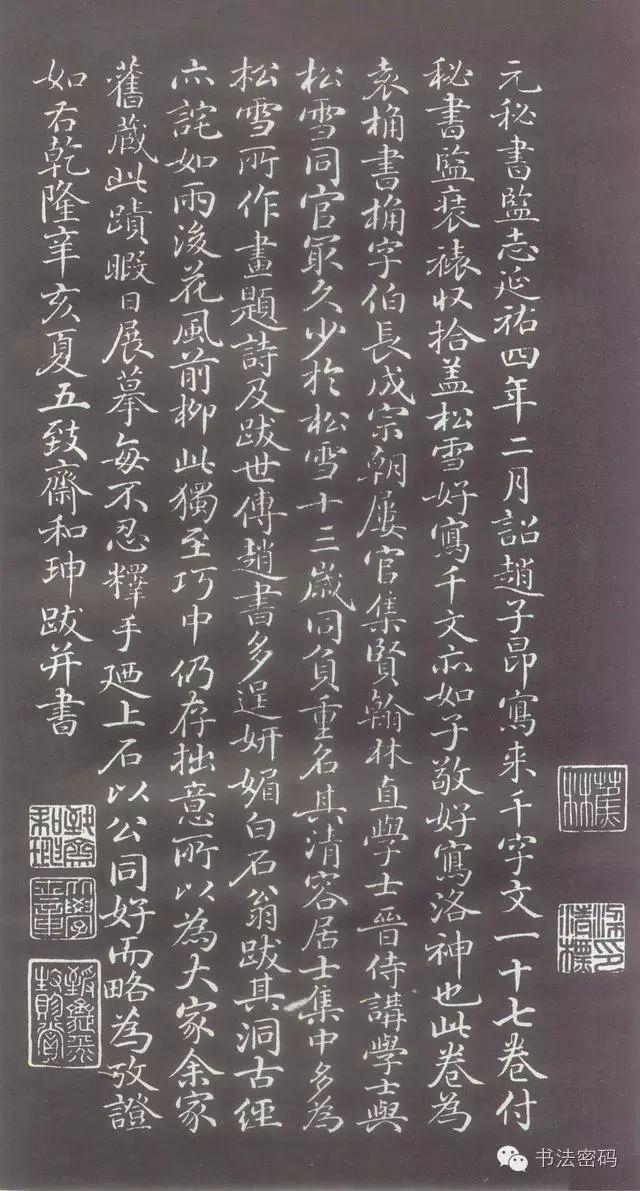 元秘書監志延祐四年二月詔趙子昂寫來千字文一十七卷付
秘書監裝裱収拾盖松雪好寫千文亦如子敬好寫洛神也此卷為
袁桷書桷字伯長成宗朝屢官集賢翰林直學士晉侍講學士與
松雪同官冣久少於松雪十三歲同負重名其清容居士集中多為
松雪所作畫題詩及跋世傳趙書多逞妍媚白石翁跋其洞古經
亦詫如雨後花風前柳此獨至巧中仍存拙意所以為大家余家
舊蔵此蹟暇日展摹每不忍釋手廼上石以公同好而略為攷證
如右乾隆辛亥夏五致齋和珅跋并書
蕉林
致齋和珅
大學士章
书法密码